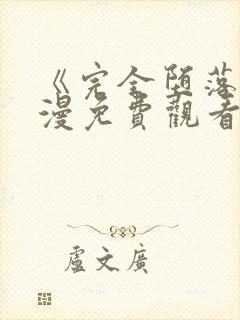 《完全堕落
漫免費觀看
盧文廣